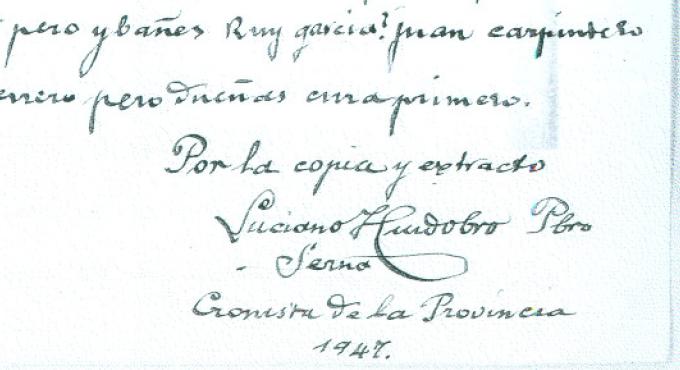 pero ybañes Ruy garcia. juan carpintero
pero dueñas cura primero.
Por la copia y extracto
Luciano Huidobro Pbro
Serna
Cronista de la Provincia
1947.